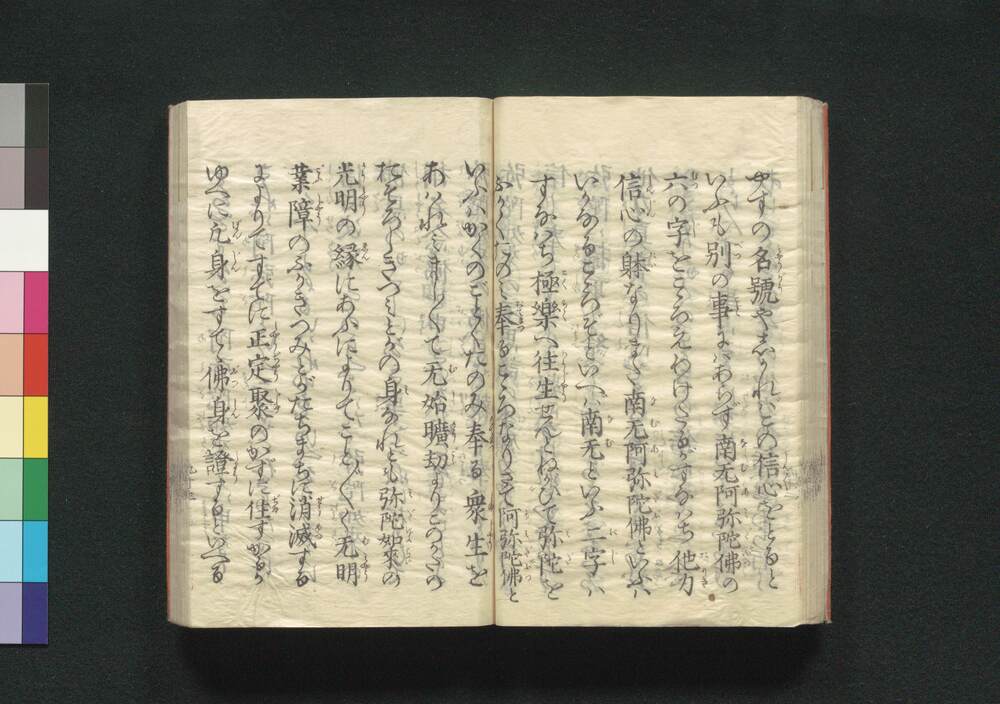 やすの名號や志かれはこの信心をとるど
いふも別の事にはあらす南无阿弥陀佛の
六の字をこころえわけたるかすなはち他力
信心の躰なりまた南无阿弥陀佛といふは
いかなるこころそといへは南无といふ二字は
すなはち極樂へ往生せんとねかひて弥陀を
ふかくたのみ奉るこころなりさて阿弥陀佛と
いふはかくのごとくたのみ奉る衆生を
あはれみましくて无始曠劫よりこのかたの
おそろしきつみとかの身なれとも弥陀如来の
光明の縁にあふによりてことくく无明
業障のふかきつみとがたちまちに消滅する
によりてすでに正定聚のかずに住すかるが
ゆへに凢身をすてて佛身を證するといへる